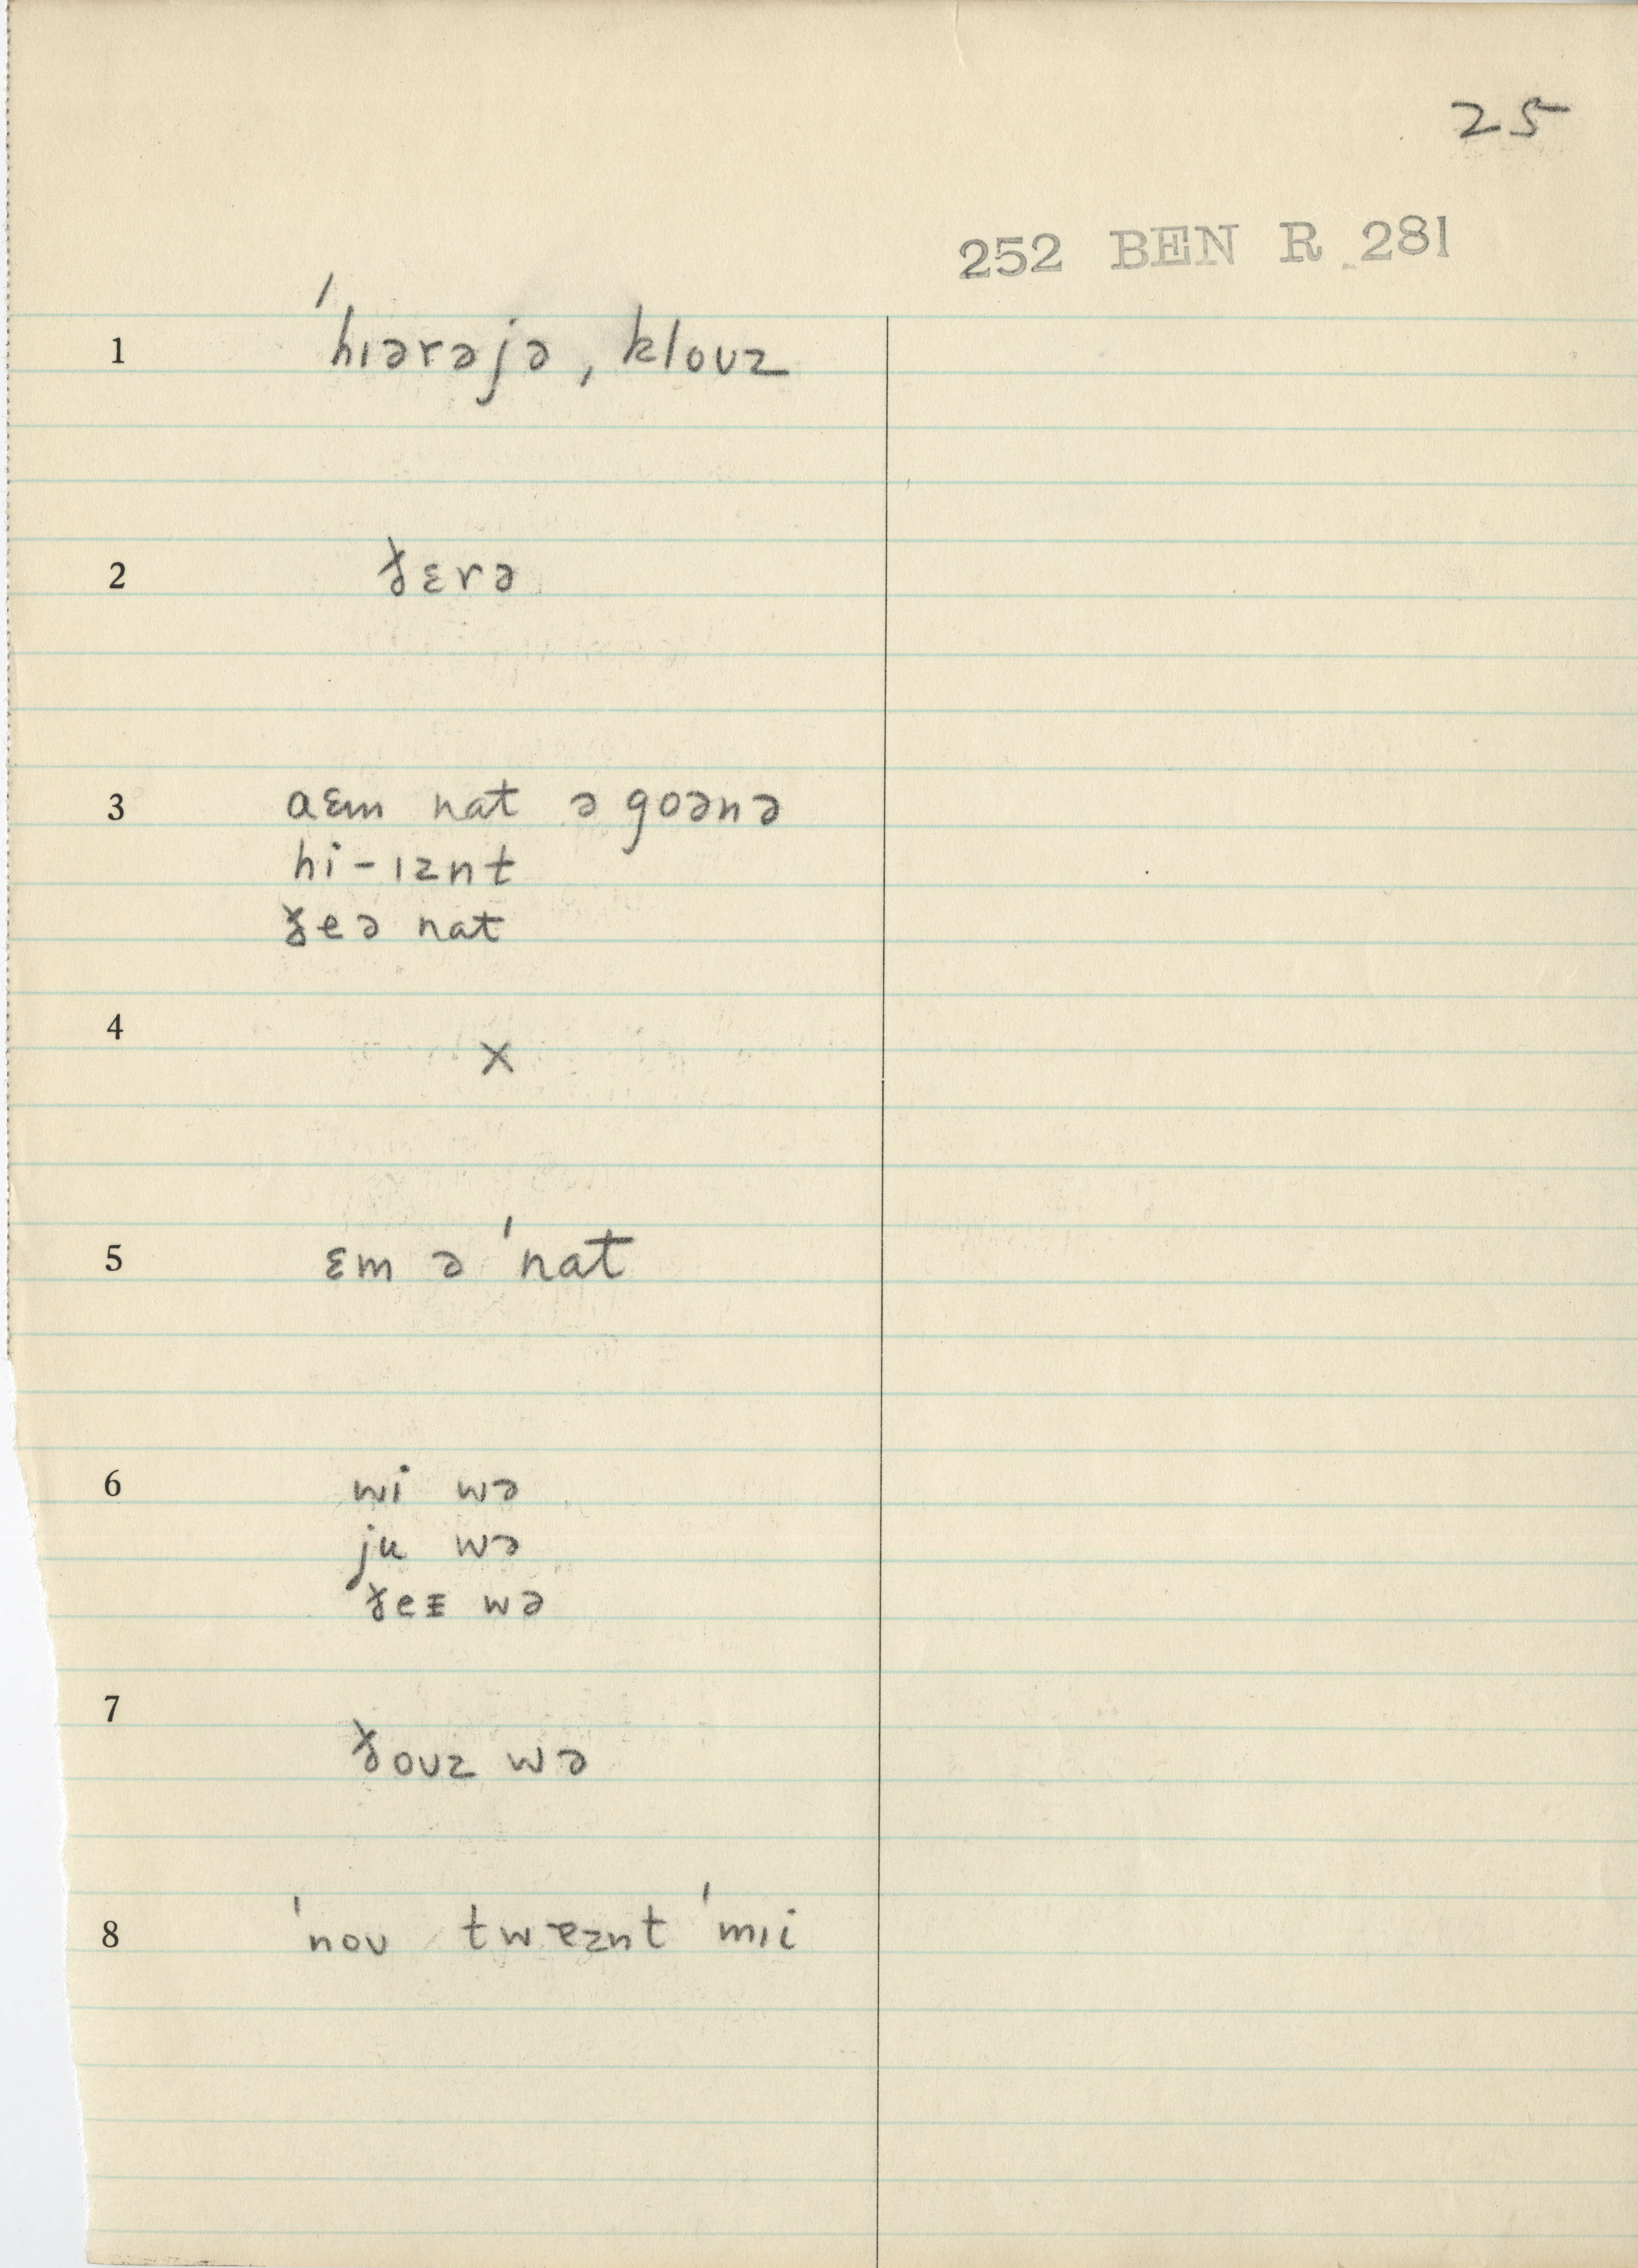 25
252 BEN R 281
1 ˈhɪərəjə, kloʊz
2 ɣɛrə
3 aɛm nat ə goənə
hi-ɪznt
ɣeə nat
4 x
5 ɛm ə ˈnat
6 wi wə
ju wə
ɣeɪ wə
7 ɣoʊz wə
8 ˈnoʊ twɐznt ˈmɪi